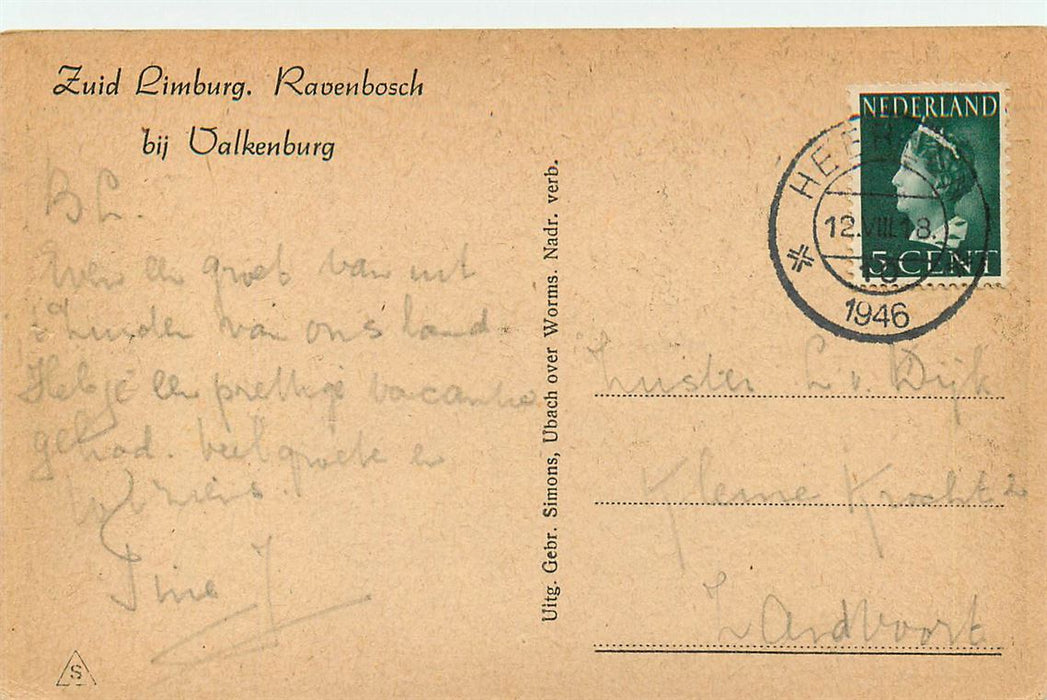 Zuid Limburg. Ravenbosch
bij Valkenburg
B L.
Even een groet van uit
't zuiden van ons land.
Heb je een prettige vacantie
gehad. veel groete en
Tine J
Uitg. Gebr. Simons, Ubach over Worms. Nadr. verb.
NEDERLAND
5 CENT
HEER
12.VIII.18.
1946
Zuster L v. Dijk
Kleine Krocht 2
Zandvoort
S